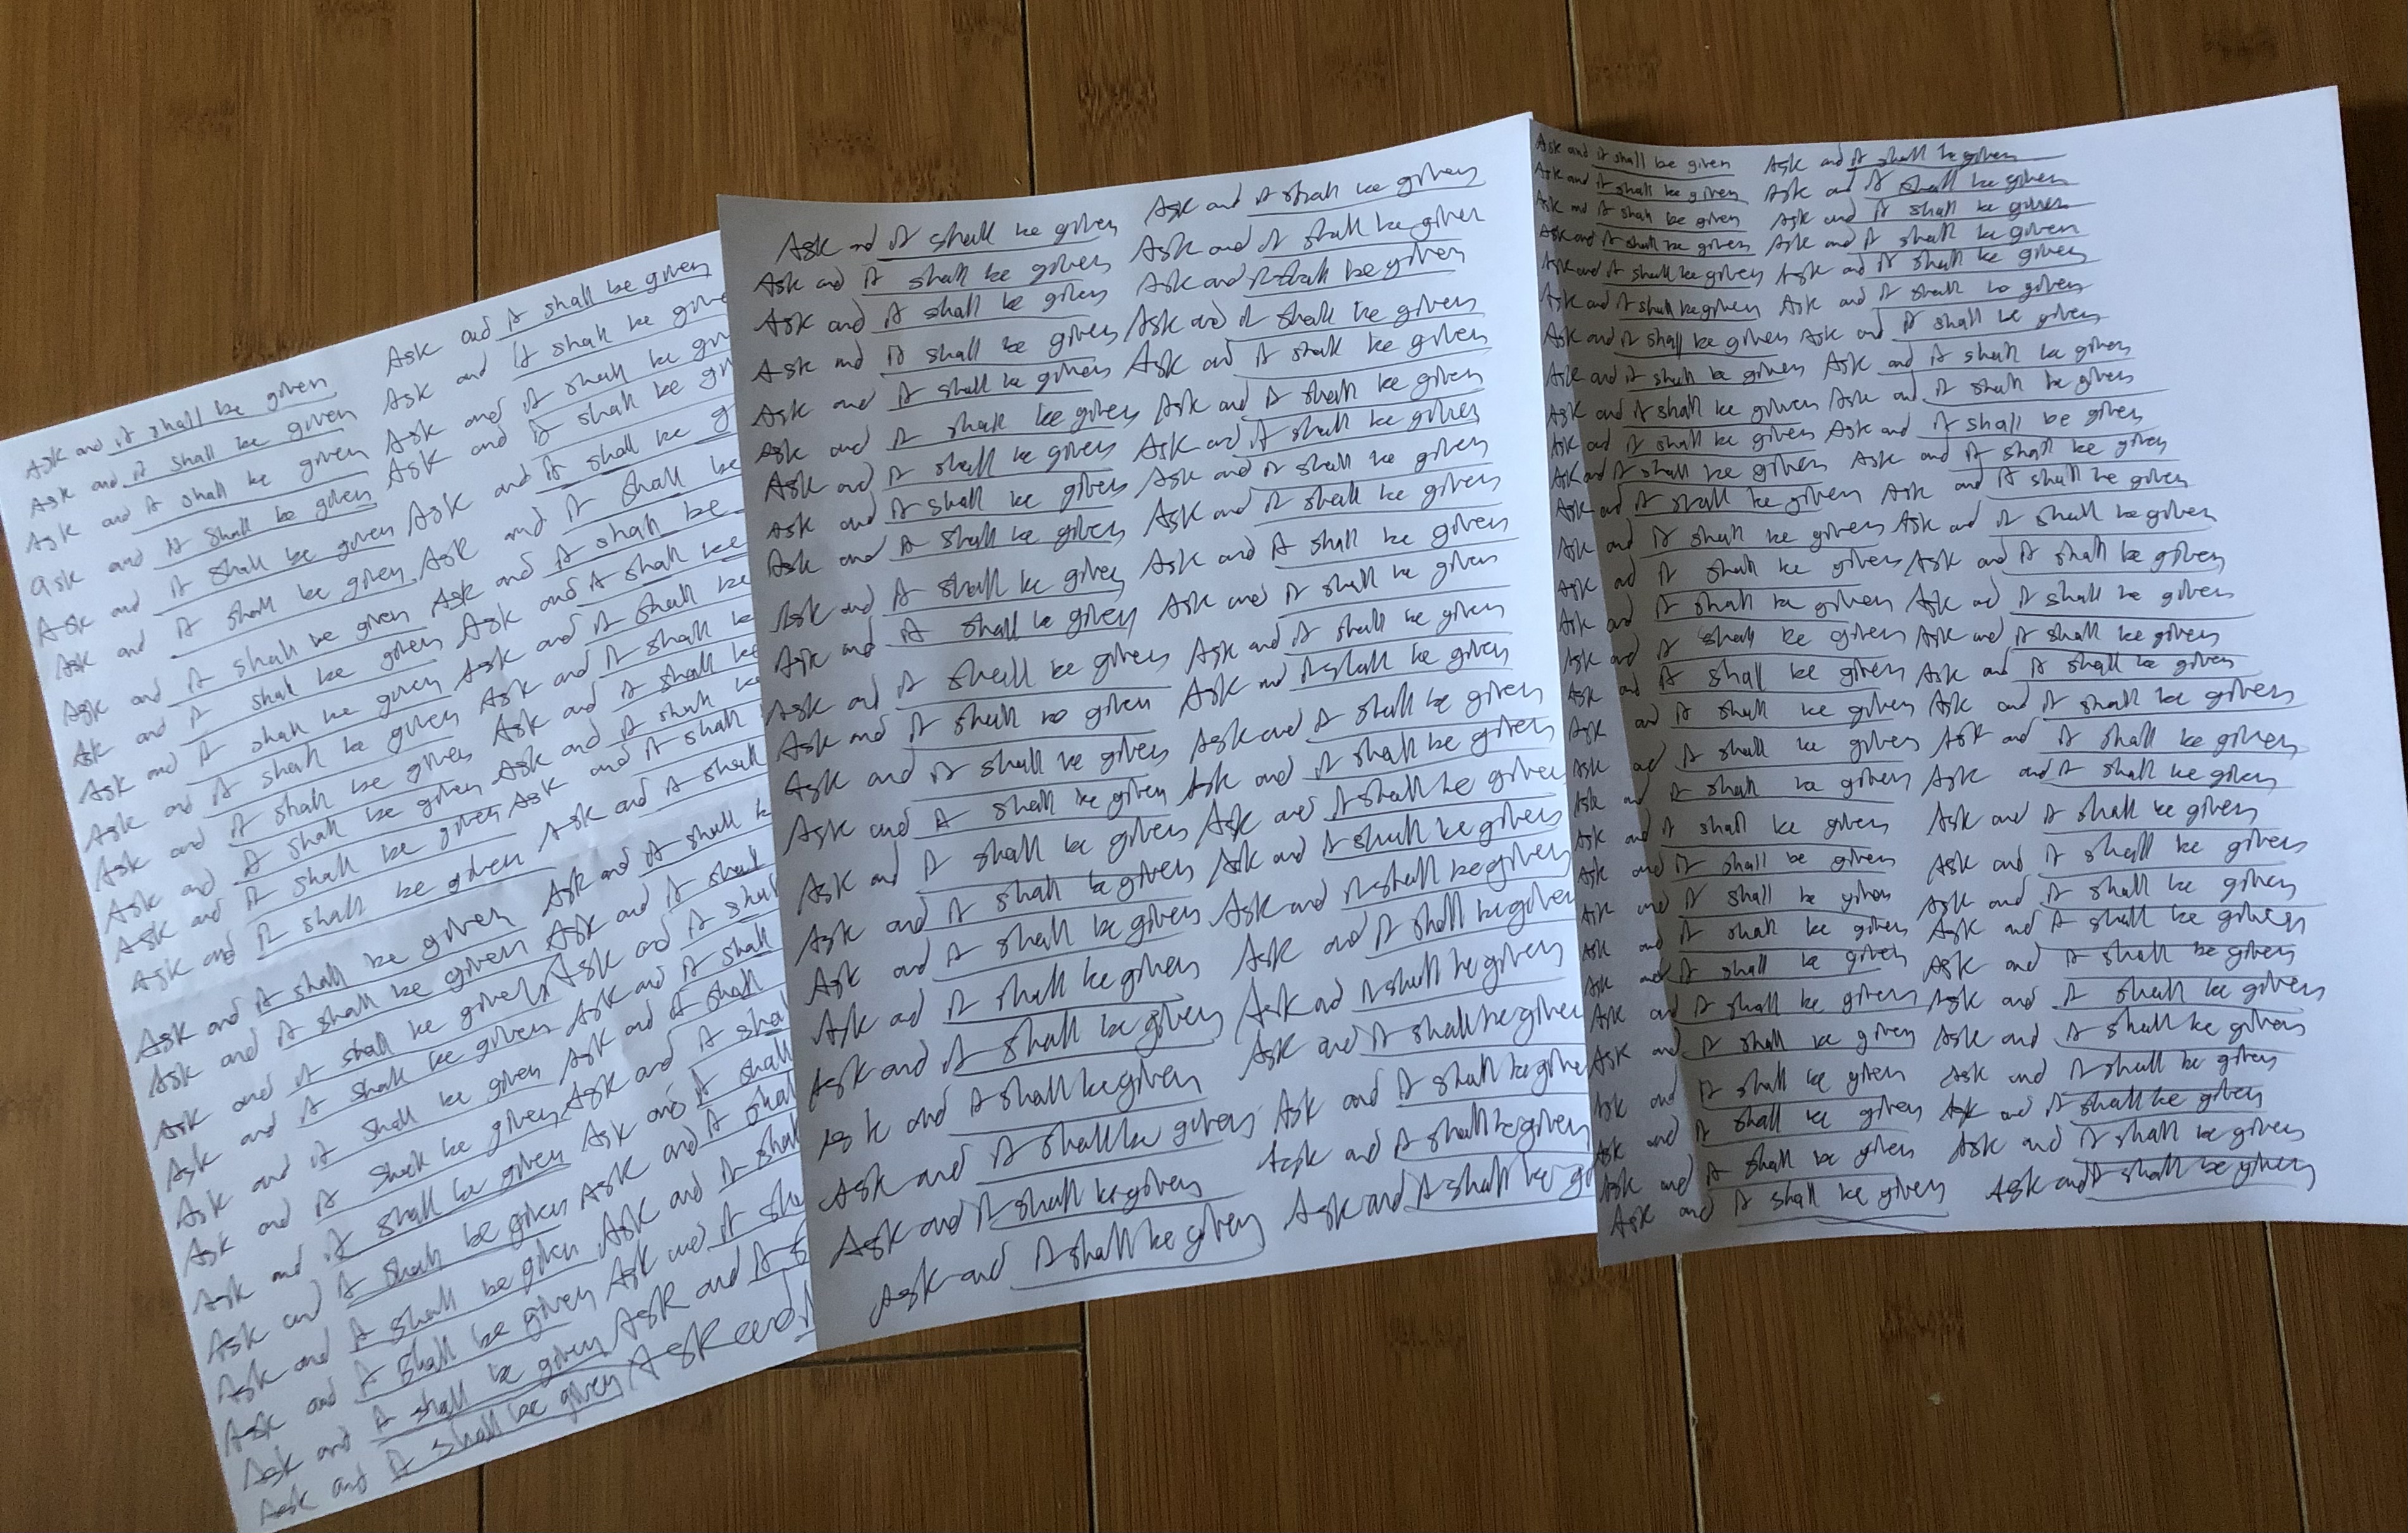 Ask and it shall be given Ask and it shall be given
Ask and it shall be given Ask and it shall be give
Ask and it shall be given Ask and it shall be giv
ask and it shall be given Ask and it shall be gi
Ask and it shall be given Ask and it shall be g
Ask and it shall be given Ask and it shall be
Ask and it shall be given Ask and it shall be
Ask and it shall be given Ask and it shall be
Ask and it shall be given Ask and it shall be
Ask and it shall be given Ask and it shall be
Ask and it shall be given Ask and it shall be
Ask and it shall be given Ask and it shall be
Ask and it shall be given Ask and it shall
Ask and it shall be given Ask and it shall
Ask and it shall be given Ask and it shall b
Ask and it shall be given Ask and it shall
Ask and it shall be given Ask and it shall
Ask and it shall be given Ask and it shall
Ask and it shall be given Ask and it shall
Ask and it shall be given Ask and it sha
Ask and it shall be given Ask and it shall
Ask and it shall be given Ask and it shal
Ask and it shall be given Ask and it shal
Ask and it shall be given Ask and it she
Ask and it shall be given Ask and it s
Ask and it shall be given Ask and
Ask and it shall be given Ask and it shall be given
Ask and it shall be given Ask and it shall be given
Ask and it shall be given Ask and it shall be given
Ask and it shall be given Ask and it shall be given
Ask and it shall be given Ask and it shall be given
Ask and it shall be given Ask and it shall be given
Ask and it shall be given Ask and it shall be given
Ask and it shall be given Ask and it shall be given
Ask and it shall be given Ask and it shall be given
Ask and it shall be given Ask and it shall be given
Ask and it shall be given Ask and it shall be given
Ask and it shall be given Ask and it shall be given
Ask and it shall be given Ask and it shall be given
Ask and it shall be given Ask and it shall be given
Ask and it shall be given Ask and it shall be given
Ask and it shall be given Ask and it shall be given
Ask and it shall be given Ask and it shall be given
Ask and it shall be given Ask and it shall be given
Ask and it shall be given Ask and it shall be given
Ask and it shall be given Ask and it shall be given
Ask and it shall be given Ask and it shall be given
Ask and it shall be given Ask and it shall be give
Ask and it shall be given Ask and it shall be given
Ask and it shall be given Ask and it shall be gi
Ask and it shall be given Ask and it shall be given
Ask and it shall be given Ask and it shall be given
Ask and it shall be given Ask and it shall be given
Ask and it shall be given Ask and it shall be given
Ask and it shall be given Ask and it shall be given
Ask and it shall be given Ask and it shall be given
Ask and it shall be given Ask and it shall be given
Ask and it shall be given Ask and it shall be given
Ask and it shall be given Ask and it shall be given
Ask and it shall be given Ask and it shall be given
Ask and it shall be given Ask and it shall be given
Ask and it shall be given Ask and it shall be given
Ask and it shall be given Ask and it shall be given
Ask and it shall be given Ask and it shall be given
Ask and it shall be given Ask and it shall be given
Ask and it shall be given Ask and it shall be given
Ask and it shall be given Ask and it shall be given
Ask and it shall be given Ask and it shall be given
Ask and it shall be given Ask and it shall be given
Ask and it shall be given Ask and it shall be given
Ask and it shall be given Ask and it shall be given
Ask and it shall be given Ask and it shall be given
Ask and it shall be given Ask and it shall be given
Ask and it shall be given Ask and it shall be given
Ask and it shall be given Ask and it shall be given
Ask and it shall be given Ask and it shall be given
Ask and it shall be given Ask and it shall be given
Ask and it shall be given Ask and it shall be given
Ask and it shall be given Ask and it shall be given
Ask and it shall be given Ask and it shall be given
Ask and it shall be given Ask and it shall be given